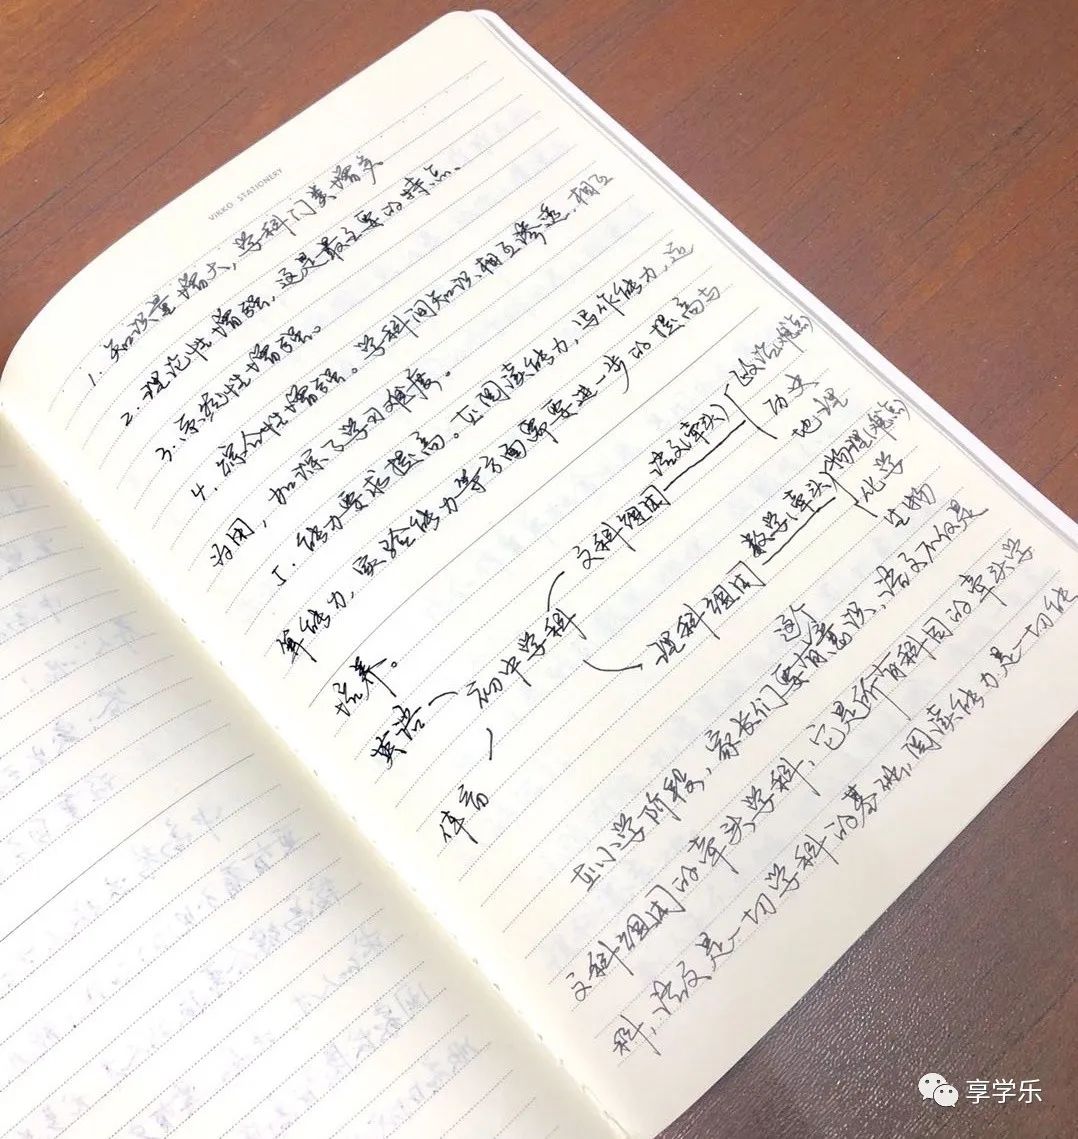 VIKKO STATIONERY
1. 知识量增大,学科门类增多
2. 理论性增强,这是最主要的特点、
3. 系统性增强。
4. 综合性增强。学科间知识相互渗透,相互
为用,加深了学习难度。
5. 能力要求提高。在阅读能力,写作能力,运
算能力,实验能力等方面需要进一步的提高与
培养。
英语
初中学科
体育
文科组团 语文(牵头)
政治(难点)
历史
地理
理科组团 数学(牵头)
物理(难点)
化学
生物
这个
在小学阶段,家长们要有意识,语文不仅是
文科组团的牵头学科,它是所有科目的牵头学
科,语文是一切学科的基础,阅读能力是一切能
享学乐